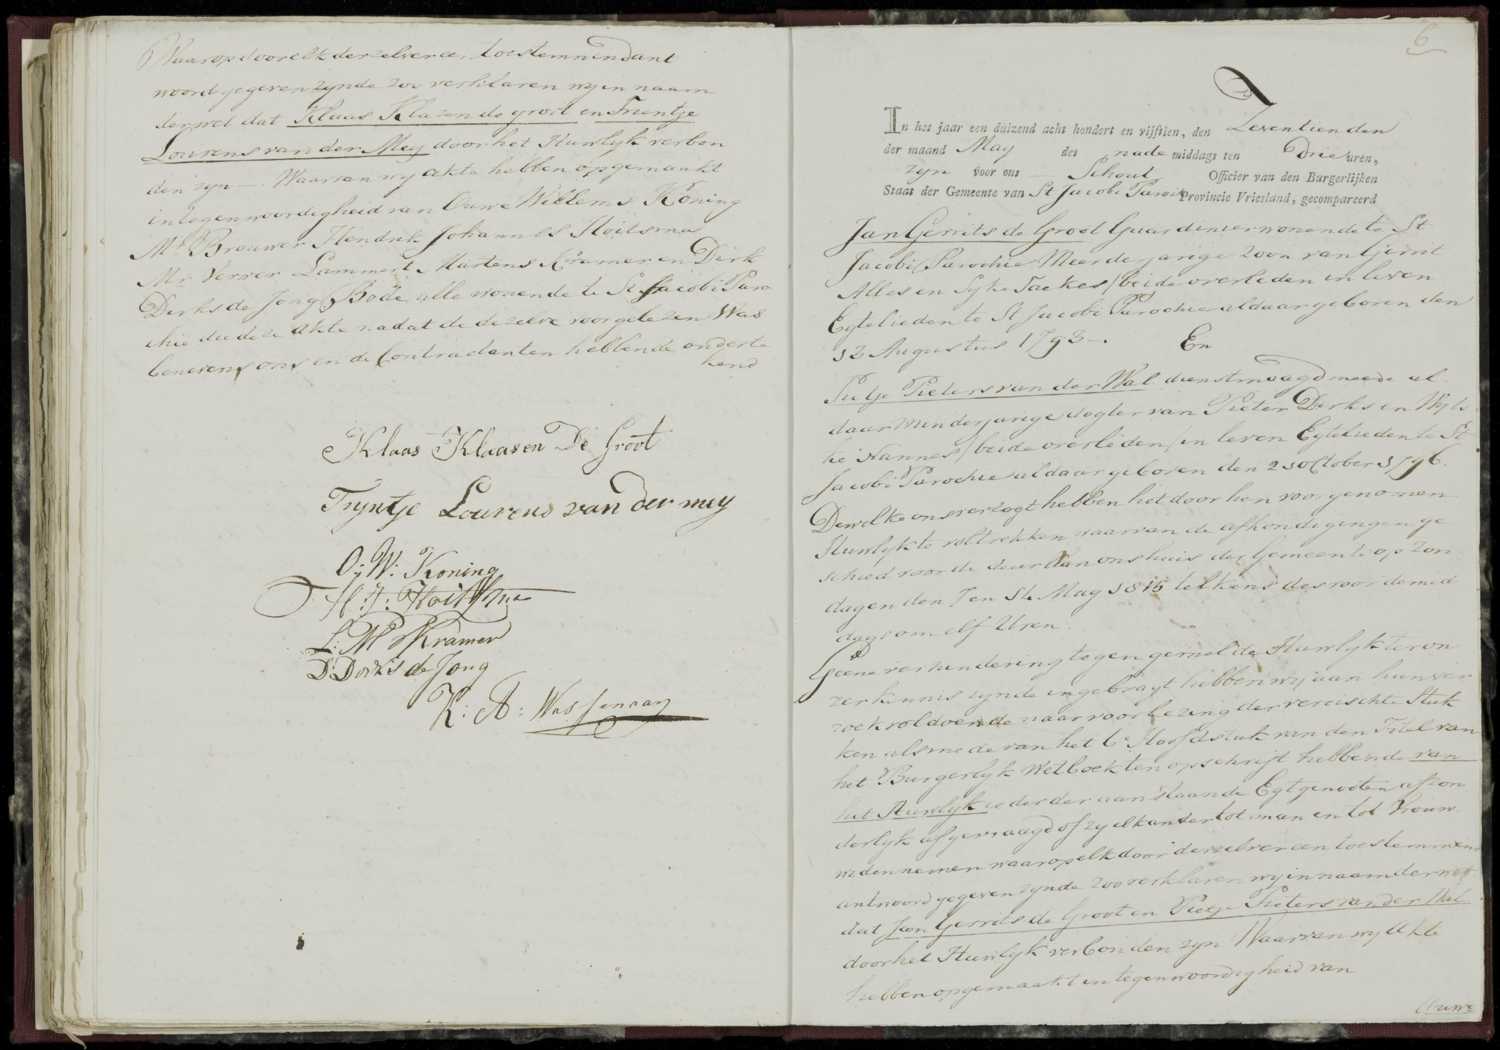 Waarop door elk derzelver een toestemmend ant
woord gegeven zynde zoo verklaren wy in naam
der wet dat Klaas Klazen de groot en Trientje
Lourens van der Mey door het Huwlyk verbon
den zyn —. Waarvan wy akte hebben opgemaakt
in tegenwoordigheid van Ouwe Willems Koning
Mr Brouwer Hendrik Johannes Hoitsma
Mr Verver Lammert Martens Kramer en Dirk
Dirks de Jong Bode alle wonende te St Jacobi Paro
chie die deze akte nadat de dezelve voorgelezen was
benevens ons en de Contradenten hebbende onderte
kend
Klaas Klaasen De Groot
Tryntje Lourens van der mey
O: W: Koning
H: J: Hoitsma
L: M Kramer
D: Dirks de Jong
K: A: Wassenaar
6
In het jaar een duizend acht hondert en vijftien, den Zeventienden
der maand May des nade middags ten Drie uren,
zyn voor ons — Schout Officier van den Burgerlijken
Staat der Gemeente van St Jacobi Paroch Provincie Vriesland, gecompareerd
Jan Gerrits de Groot Guardenier wonende te St
Jacobi Parochie Meerderjarige Zoon van Gerrit
Alles en Syke Taekes / beide overleden in leven
Egtelieden te St Jacobi Parochie aldaar geboren den
12 Augustus 1792 —. En
Pietje Pieters van der Wal dienstmaagd meede al
daar Minderjarige dogter van Pieter Dirks en Wyts
ke Hannes / beide overleden / in leven Egtelieden te St
Jacobi Parochie aldaar geboren den 2 October 1796.
Dewelke ons verzogt hebben het door hen voorgenomen
Huwlyk te voltrekken waarvan de afkondigingen ge
schied voor de deur van ons huis der Gemeente op Zon
dagen den 7 en 14 May 1815 telkens des voordemid
dags om elf Uren.
Geene verhindering tegen gemelde Huwlyk ter on
zer kennis zynde ingebragt hebben wy aan hun ver
zoek voldoende naar voorlezing der vereischte Stuk
ken alsmede van het 6e Hoofdstuk van den Titel van
het Burgerlyk Wetboek ten opschrift hebbende van
het Huwlyk ieder der aanstaande Egtgenooten afzon
derlyk afgevraagd of zy elkander tot man en tot Vrouw
wilden nemen waarop elk door derzelver een toestemmend
antwoord gegeven zynde zoo verklaren wy in naam der wet
dat Jan Gerrits de Groot en Pietje Pieters van der Wal
door het Huwlyk verbonden zyn Waarvan wy Akte
hebben opgemaakt in tegenwoordigheid van
Ouwe